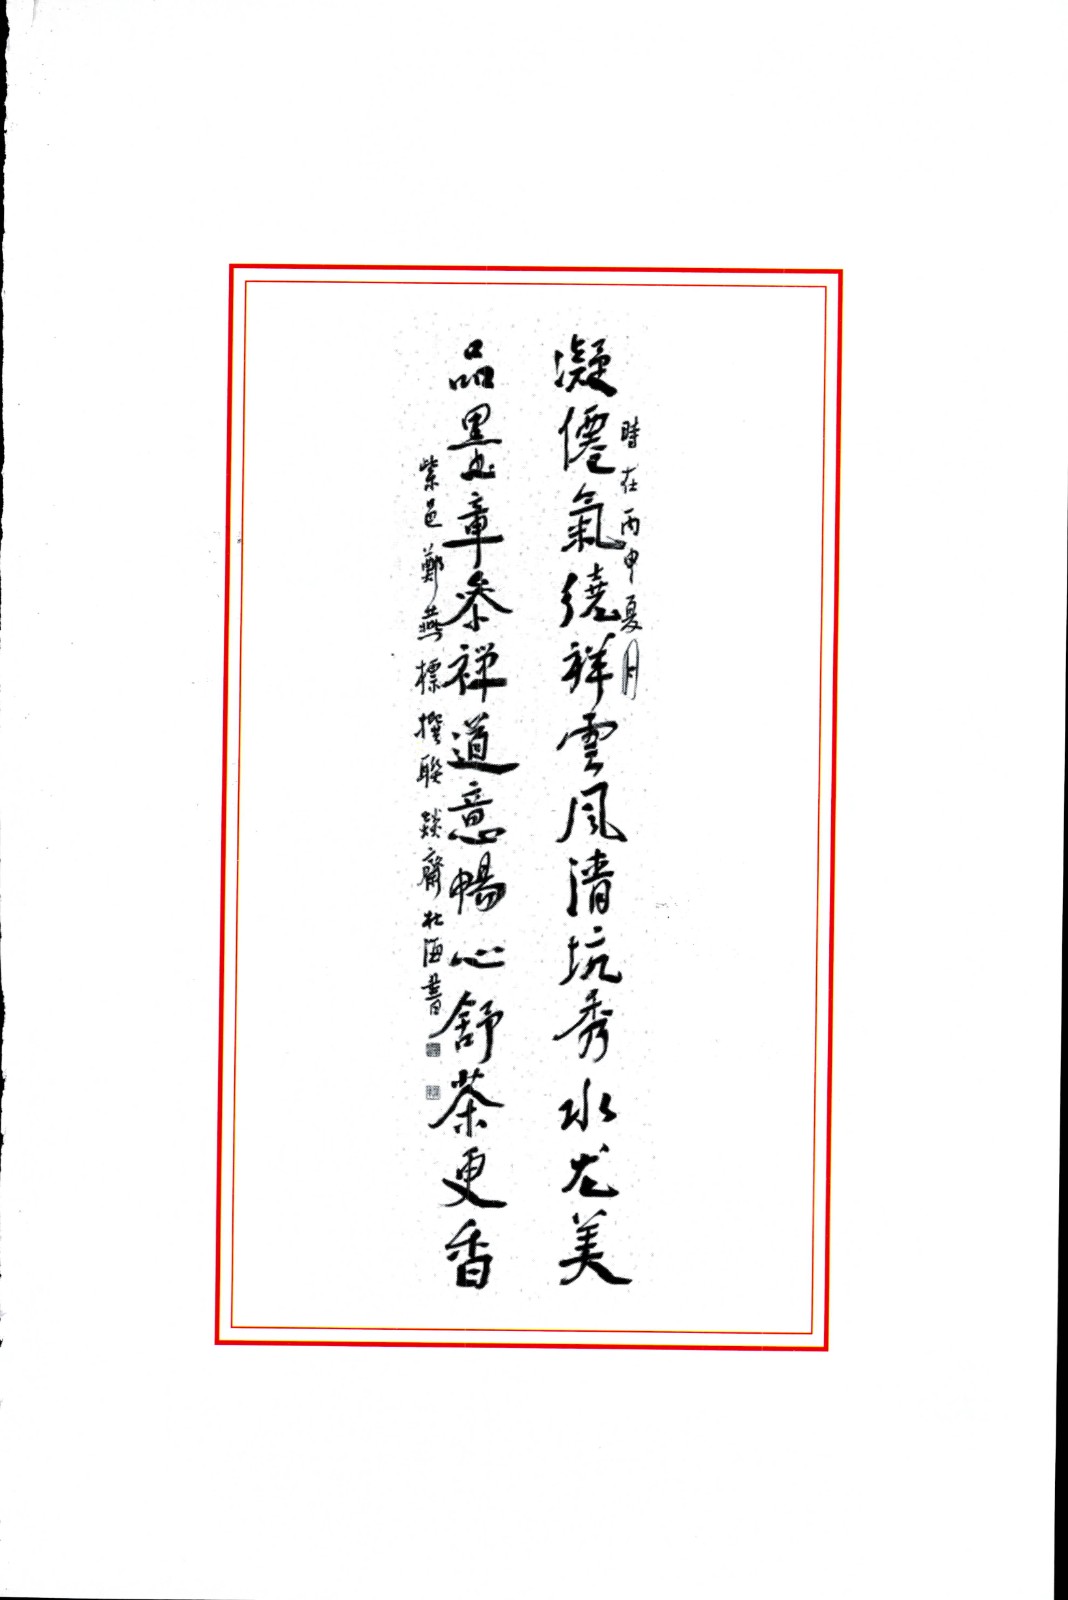 時在丙申夏月
凝僊氣繞祥雲風清坑秀水尤美
品墨章參禪道意暢心舒茶更香
紫邑鄭燕標撰聯燚齋杜海書